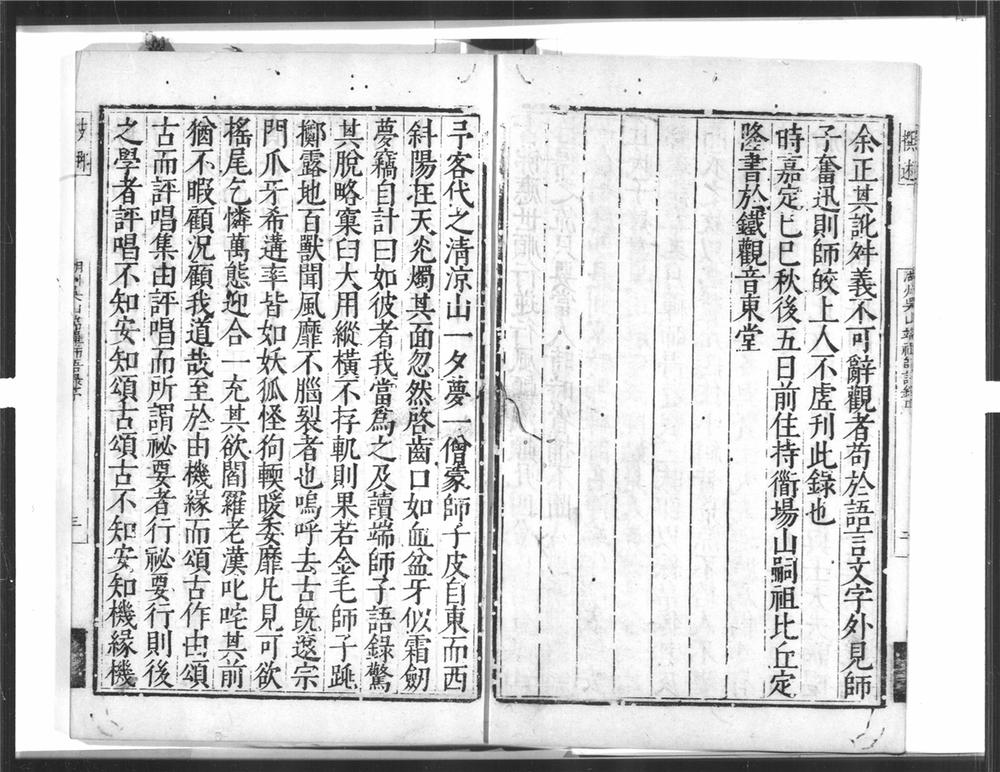 余正其訛舛義不可辭觀者苟於語言文字外見師
子奮迅則師皎上人不虛刊此錄也
時嘉定己巳秋後五日前住持衢場山嗣祖比丘定
隆書於鐵觀音東堂
予客代之清涼山一夕夢一僧蒙師子皮自東而西
斜陽在天炎燭其面忽然啓齒口如血盆牙似霜劒
夢竊自計曰如彼者我當為之及讀端師子語錄驚
其脫略窠臼大用縱橫不存軌則果若金毛師子跳
擲露地百獸聞風靡不腦裂者也嗚呼去古旣邈宗
門爪牙希遘率皆如妖狐怪狗輭暖委靡凡見可欲
搖尾乞憐萬態迎合一充其欲閻羅老漢叱咤其前
猶不暇顧況顧我道哉至於由機緣而頌古作由頌
古而評唱集由評唱而所謂祕要者行祕要行則後
之學者評唱不知安知頌古頌古不知安知機緣機